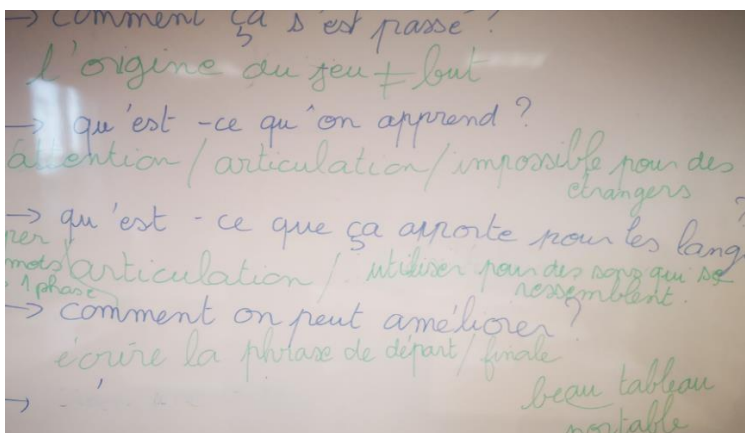 → comment ça s'est passé ?
l'origine du jeu ≠ but
→ qu'est-ce qu'on apprend ?
attention / articulation / impossible pour des
étrangers
→ qu'est-ce que ça apporte pour les lang ?
rer
mots articulation / utiliser pour des sons qui se
1 phase ressemblent.
→ comment on peut améliorer ?
écrire la phrase de départ / finale
→
beau tableau
portable